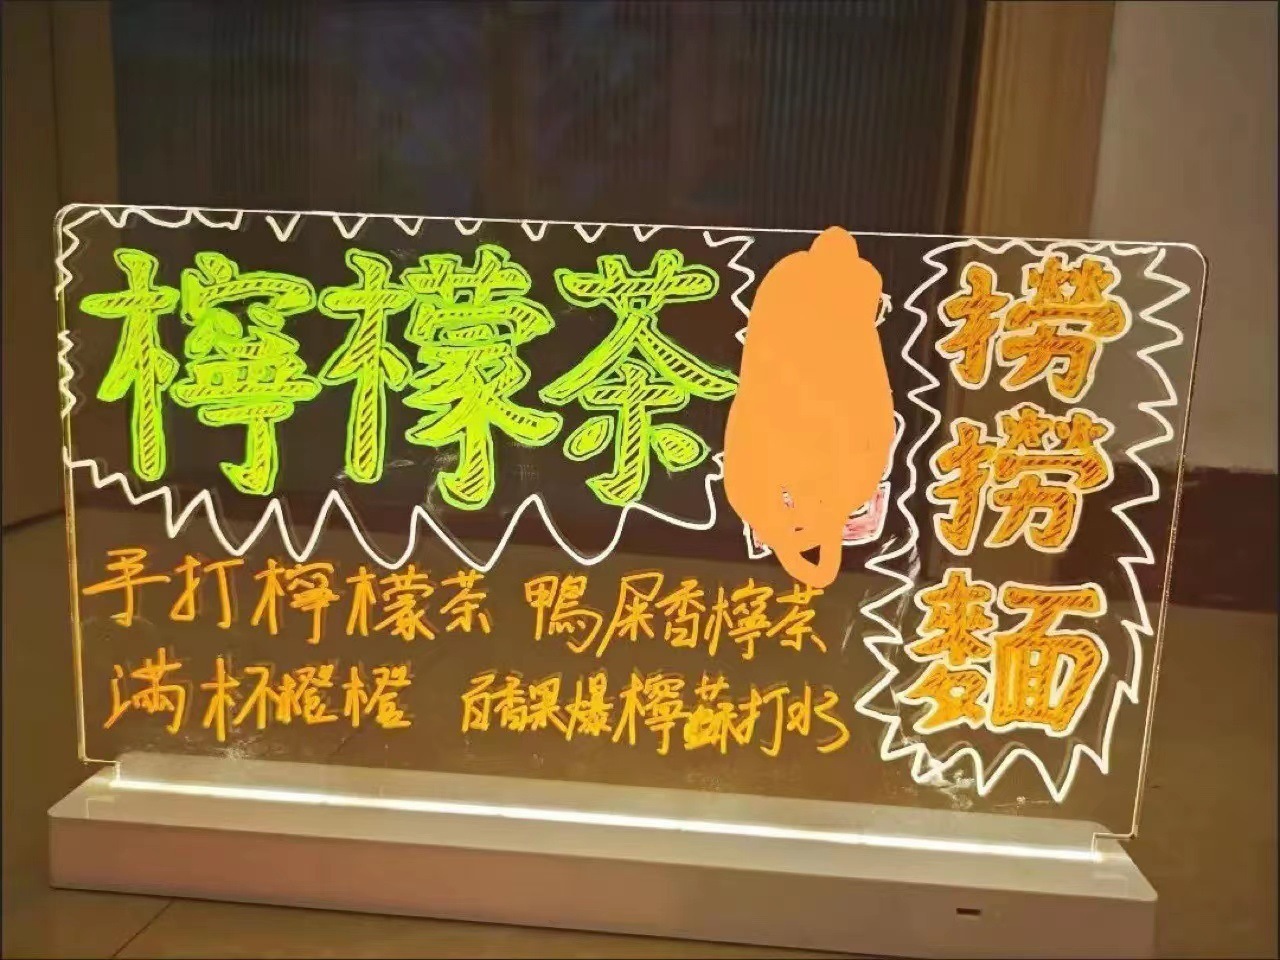 檸檬茶
撈撈麵
手打檸檬茶 鴨屎香檸茶
滿杯橙橙 百香果爆檸蘇打水